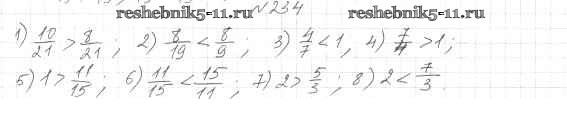 reshebnik5-11.ru №234 reshebnik5-11.ru
1) 10/21 > 8/21 ; 2) 8/19 < 8/9 ; 3) 4/7 < 1, 4) 7/4 > 1 ;
5) 1 > 11/15 ; 6) 11/15 < 15/11 ; 7) 2 > 5/3 ; 8) 2 < 7/3 .